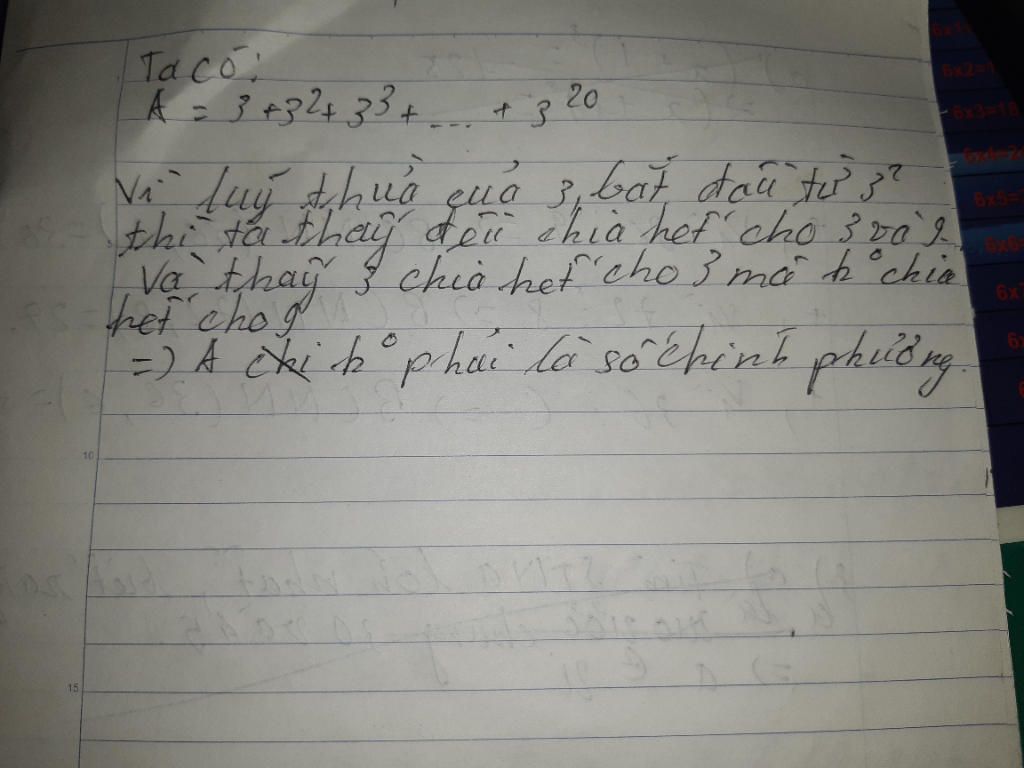 Ta có:
A = 3 + 3² + 3³ + ... + 3²⁰
Vì luỹ thừa của 3, bắt đầu từ 3²
thì ta thấy đều chia hết cho 3 và 9.
Và thấy 3 chia hết cho 3 mà k° chia
hết cho 9
=) A k° phải là số chính phương.
6x2=1
6x3=18
6x5=
6x6=